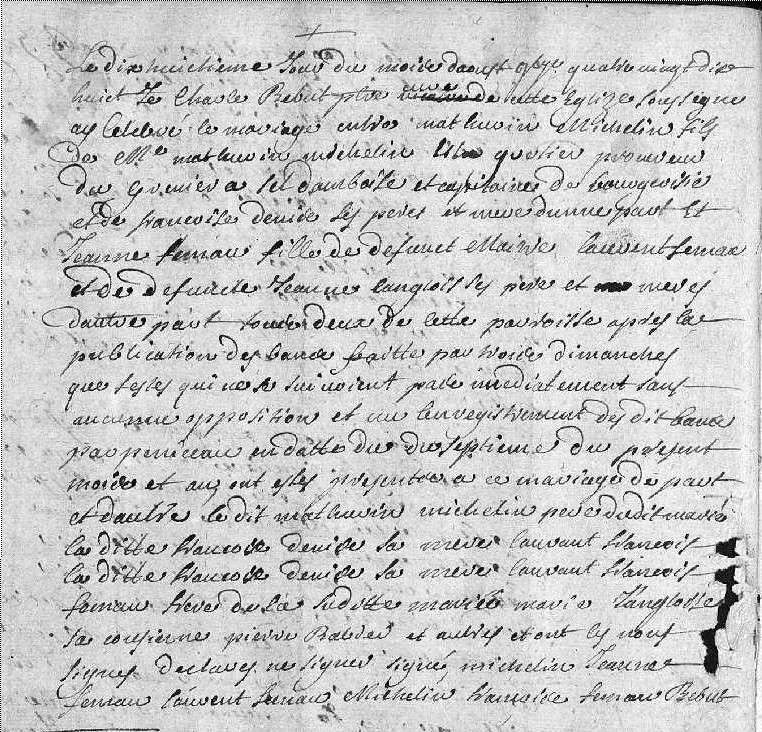 Le dix huictieme Jour du mois daoust quatre vingt dix
huict Je Charle Bebut ptre curé de cette Eglize soussigne
ay celebré le mariage entre mathurin Michelin fils
de Me mathurin michelin procureur
du Grenier a sel damboise et capitaine de bourgeoisie
et de francoise denise ses peres et mere dunne part Et
Jeanne fernau fille de defunct Maitre laurent fernau
et de defuncte Jeanne langlois ses pere et meres
dautre part tous deux de cette paroisse apres la
publication des bans faitte par trois dimanches
que festes qui ne se suivoient pas imediatement sans
aucunne opposition et vu lenregistrement des dit bans
par perriceau en datte du dixseptieme du present
mois et an ont estés presents a ce mariage de part
et dautre le dit mathurin michelin pere dudit marié
la ditte francoise denise sa mere laurant francois
la ditte francoise denise sa mere laurant francois
fernau frere de la suditte mariée marie Langlosse
sa cousinne pierre Babier et autres et ont les nous
signes declares ne signer signé michelin Jeanne
fernau laurent fernau Michelin francoise fernau Bebut